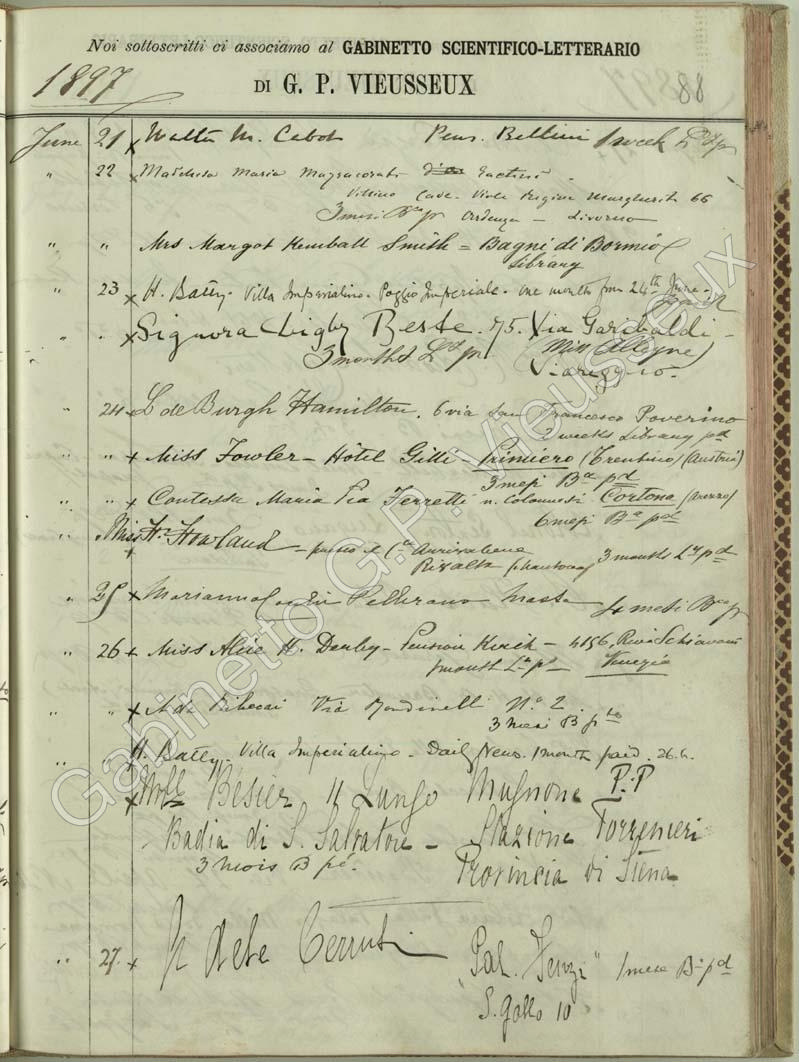 Noi sottoscritti ci associamo al GABINETTO SCIENTIFICO-LETTERARIO
1897
DI G. P. VIEUSSEUX
88
June 21 x Walter M. Cabot Pens. Bellini 1 week pp
" 22 x Marchesa Maria
Villino Viale Regina Margherita 66
3 mesi Ba p Ardenza - Livorno
" " Mrs Margot Kemball Smith = Bagni di Bormio
Library
" 23 x H. Batty. Villa Imperialino. Poggio Imperiale. one month from 24th June.
paid
" . x Signora Digby Beste. 75. Via Garibaldi -
3 months (Miss Alleyne)
Viareggio.
" 24 x L de Burgh Hamilton. 6 via San Francesco Poverino
2 weeks Library pd
" " x Miss Fowler - Hôtel Gilli Primiero (Trentino) (Austria)
3 mesi Ba pd
" " x Contessa Maria Pia Ferretti n. Colonnesi Cortona (Arezzo)
6 mesi Ba pd
" Miss H. Howland - presso la Ctssa Arrivabene 3 months pd
x Rivalta (Mantova)
" 25 x Marianna Pellerano Massa 4 mesi Ba p
" 26 x Miss Alice H. Derby - Pension Kirsch - 4156, Riva Schiavoni
1 month Venezia
" x Ada Ribecai Via Rondinelli No. 2
3 mesi B. pto
" H. Batty. Villa Imperialino - Daily News. 1 month paid. 26.6.
x Bésier 11 Lungo Mugnone P.P
Badia di S. Salvatore - Stazione Torrenieri
3 mois B pé. Provincia di Siena
" 27. x Cerruti "Pal. Fenzi" 1 mese B. pd
S. Gallo 10
Gabinetto G.P. Vieusseux